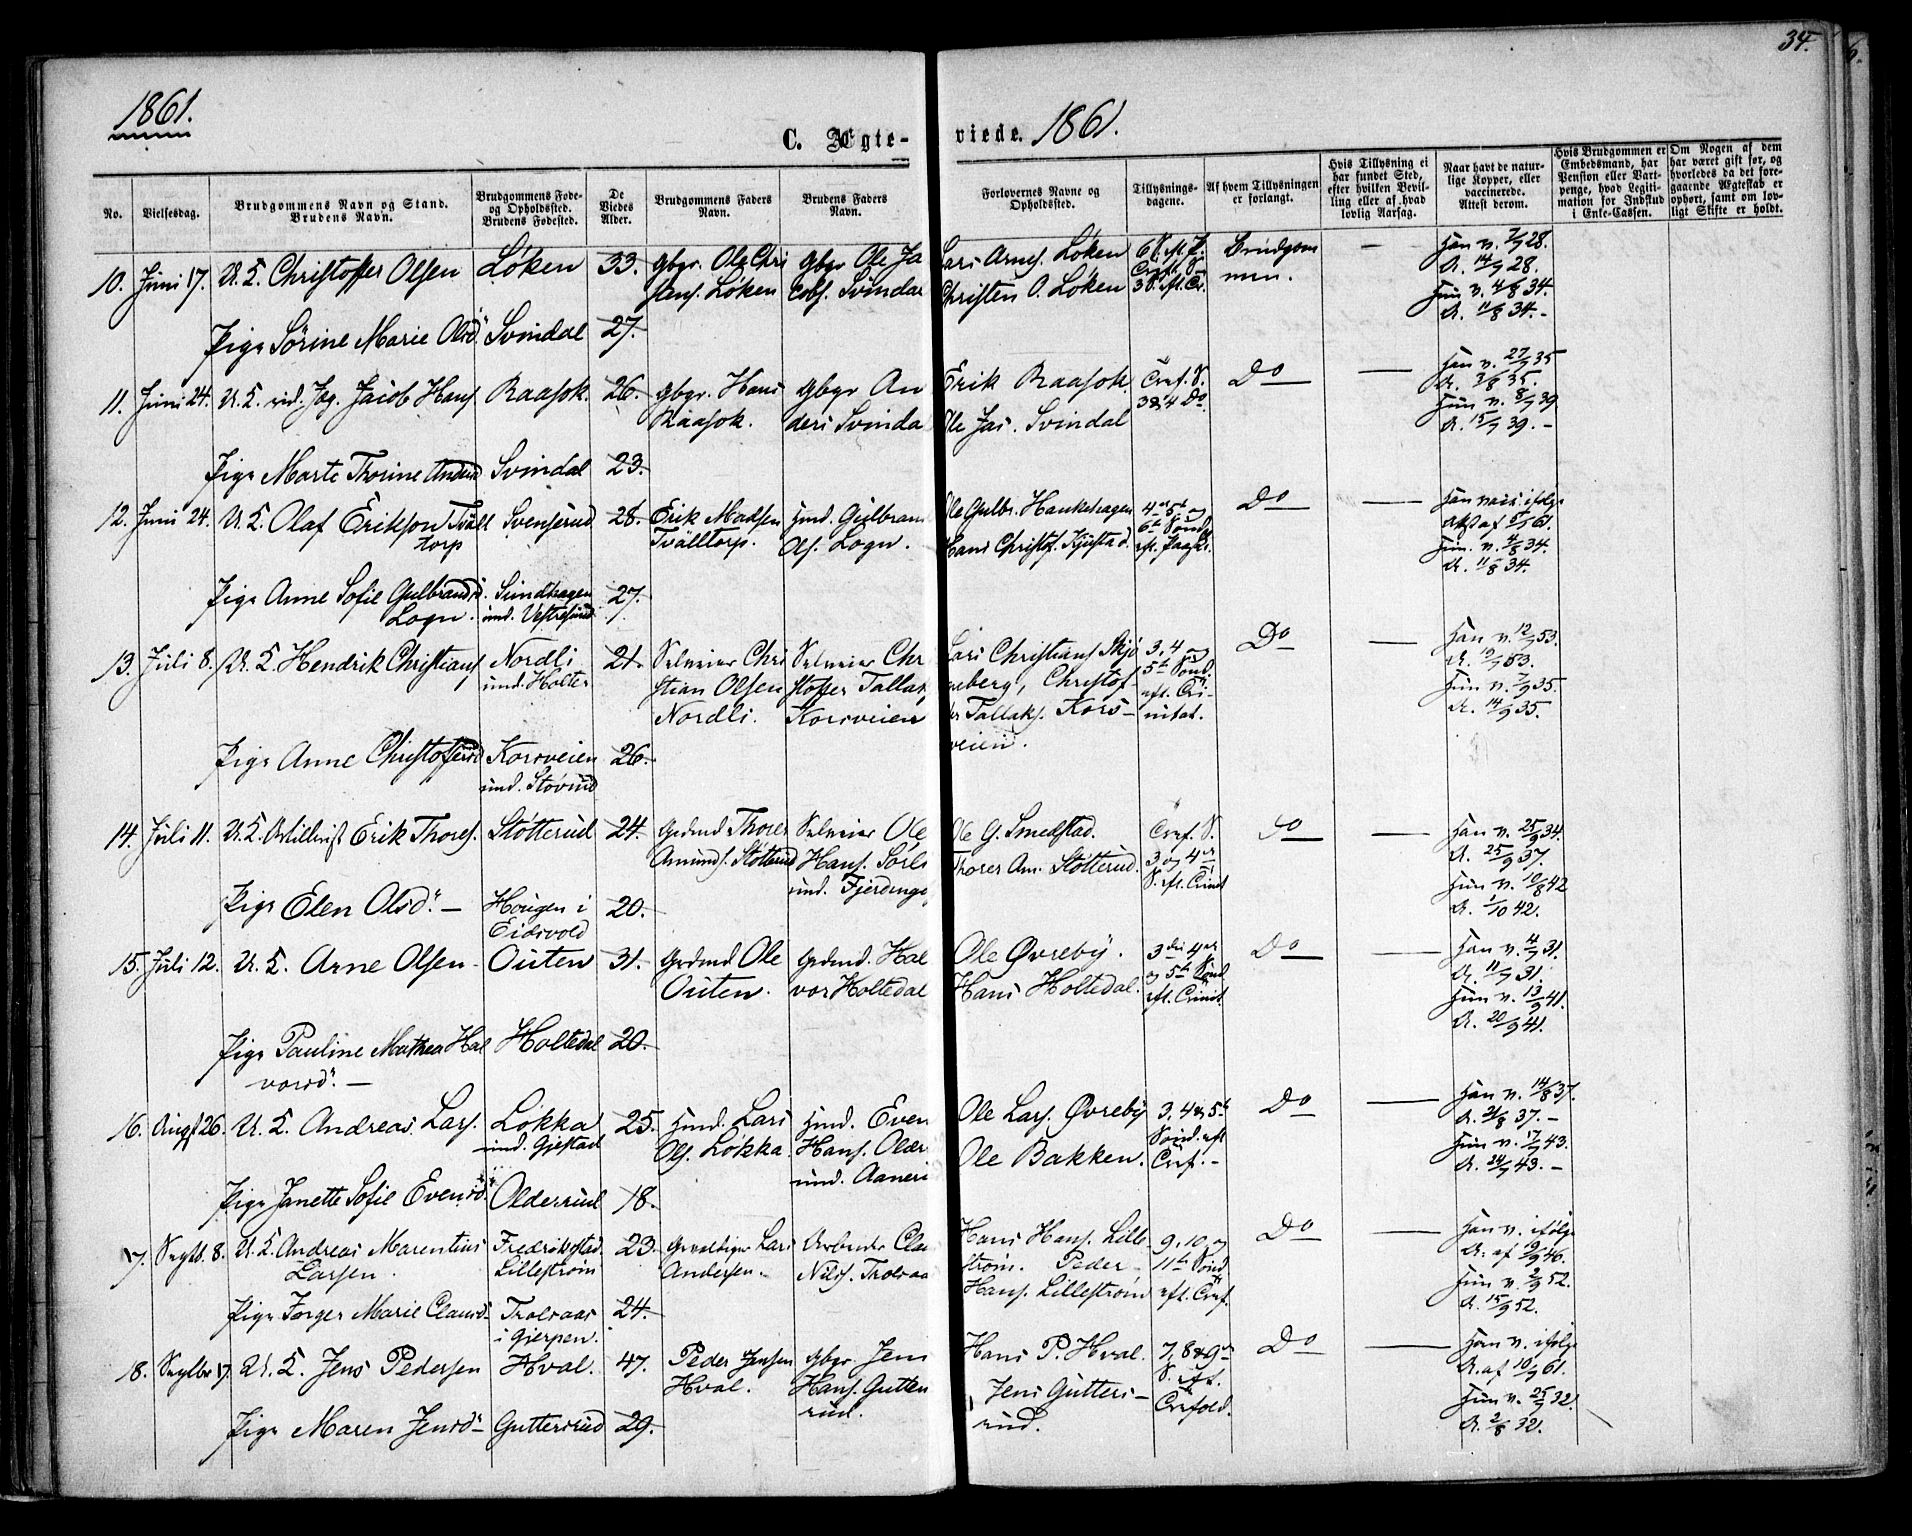 34.
1861.
C. Ægte-
viede. 1861.
No.
Vielsesdag.
Brudgommens Navn og Stand.
Brudens Navn.
Brudgommens Føde-
og Opholdssted.
Brudens Fødested.
De
Viedes
Alder.
Brudgommens Faders
Navn.
Brudens Faders
Navn.
Forlovernes Navne og
Opholdssted.
Tillysnings-
dagene.
Af hvem Tillysningen
er forlangt.
Hvis Tillysning ei
har fundet Sted,
efter hvilken Bevil-
ling eller af hvad
lovlig Aarsag.
Naar havt de natur-
lige Kopper, eller
vaccinerede.
Attest derom.
Hvis Brudgommen er
Embedsmand, har
Pension eller Vart-
penge, hvad Legiti-
mation for Indskud
i Enke-Cassen.
Om Nogen af dem
har været gift før, og
hvorledes da det fore-
gaaende Ægteskab er
ophørt, samt om lov-
ligt Skifte er holdt.
10. Juni 17. U. K. Christoffer Olsen
Løken
33.
Gbgr. Ole Chri
stians. Løken
Gbgr Ole Ja
cobs. Svindal
Lars Arnes. Løken
Christen O. Løken
Brudgom
men.
—
Han v. 7/7 28.
A. 14/7 28.
Hun v. 4/8 34.
A. 11/8 34.-
Pige Sörine Marie Olsd. Svindal 27.
11. Juni 24. U. K. rid. Jæg. Jacob Hans. Raasok. 26.
Gbgr. Hans
Raasok.
Gbgr An
ders Svindal
Erik Raasok
Ole Jac. Svindal
Do
—
Han v. 27/7 35
A. 3/8 35.
Hun v. 8/7 39
A. 15/7 39.-
Pige Marte Thorine Andersd Svindal 23.
12. Juni 24. U. K. Olaf Erikson Tväll
torp
Svenserud 28.
Erik Madsen
Tvälltorp.
Husmd. Gulbrand
Ols. Logn.
Ole Gulbr. Hankehagen
Hans Christof. Kjustad.
Do
—
Hun. v. 4/8 34.
A. 11/8 34.
Pige Anne Sofie Gulbrandsd.
Logn.
Sundhagen
und. Vestresund
27.
13. Juli 8. U. K. Hendrik Christians. Nordli
und. Holter
21.
Selveier Chri
stian Olsen
Nordli.
Selveier Chr
stoffer Tallaks
Korsveien
Lars Christians Skjø
neberg, Christof-
fer Tallaks. Kors-
veien.
3, 4 og
5te Sönd.
eft. Tri-
nitat.
Do
—
Han v. 12/9 53.
A. 19/9 53.
Hun v. 7/9 35.
A. 14/9 35.
Pige Anne Christoffersd Korsveien
und. Støvind
26.
14. Juli 11. U. K. Artillerist Erik Thores. Støtterud 24.
Grdmd Thorer
Amunds. Støtterud
Selveier Ole
Hans. Sörli
und. Fjerdinge
Ole G. Smedstad.
Thorer Am. Støtterud.
Do
—
Han v. 25/9 34.
A. 25/9 37.
Hun v. 10/8 42
A. 1/10 42.
Pige Elen Olsd. —
Hougen i
Eidsvold
20.
15. Juli 12. U. K. Arne Olsen Outen 31.
Grdmd Ole
Outen.
Grdmd. Hal
vor Holtedal
Ole Øvreby.
Hans Holtedal.
Do
—
Han v. 4/7 31.
A. 11/7 31.
Hun v. 13/9 41.
A. 20/9 41.
Pige Pauline Mathea Hal
vorsd. —
Holtedal 20.
16. Augst 26. U. K. Andreas Lars. Løkka
und. Gjestad
25.
Husmd. Lars
Ols. Løkka.
Husmd. Even
Hans. Older
und. Aanerud
Ole Lars. Øvreby
Ole Bakken.
3, 4 & 5te
Sönd. eft
Tref.-
Do
—
Han v. 14/8 37.
A. 21/8 37.-
Hun v. 17/7 43.
A. 24/7 43.-
Pige Janette Sofie Evensd. Olderrud 18.
17. Septb. 8. U. K. Andreas Marentius
Larsen.
Fredrikstad
Lillestrøm
23.
Gevaldiger Lars
Andersen.-
Arbeider Clau
Nils. Trolsaa
Hans Hans. Lille
strøm. Peder
Hans. Lillestrøm
9, 10 og
11te Sönd
eft. Tref.
Do
—
Han v. ifølge
A. af 19/9 46.
Hun v. 2/9 52.
A. 15/9 52.
Pige Inger Marie Clausd- Trolsaas
i Gjerpen.
24.
18. Septbr 17. U. K. Jens Pedersen Hval. 47.
Peder Jensen
Hval.
Gbgr. Jens
Hans. Gutters
rud.
Hans P. Hval.
Jens Gutters-
rud.
7, 8 & 9de
S. eft.
Trefold.
Do
—
Han v. ifølge
A. af 10/9 61.
Hun v. 25/7 32.
A. 2/8 32.
Pige Maren Jensd- Guttersrud 29.